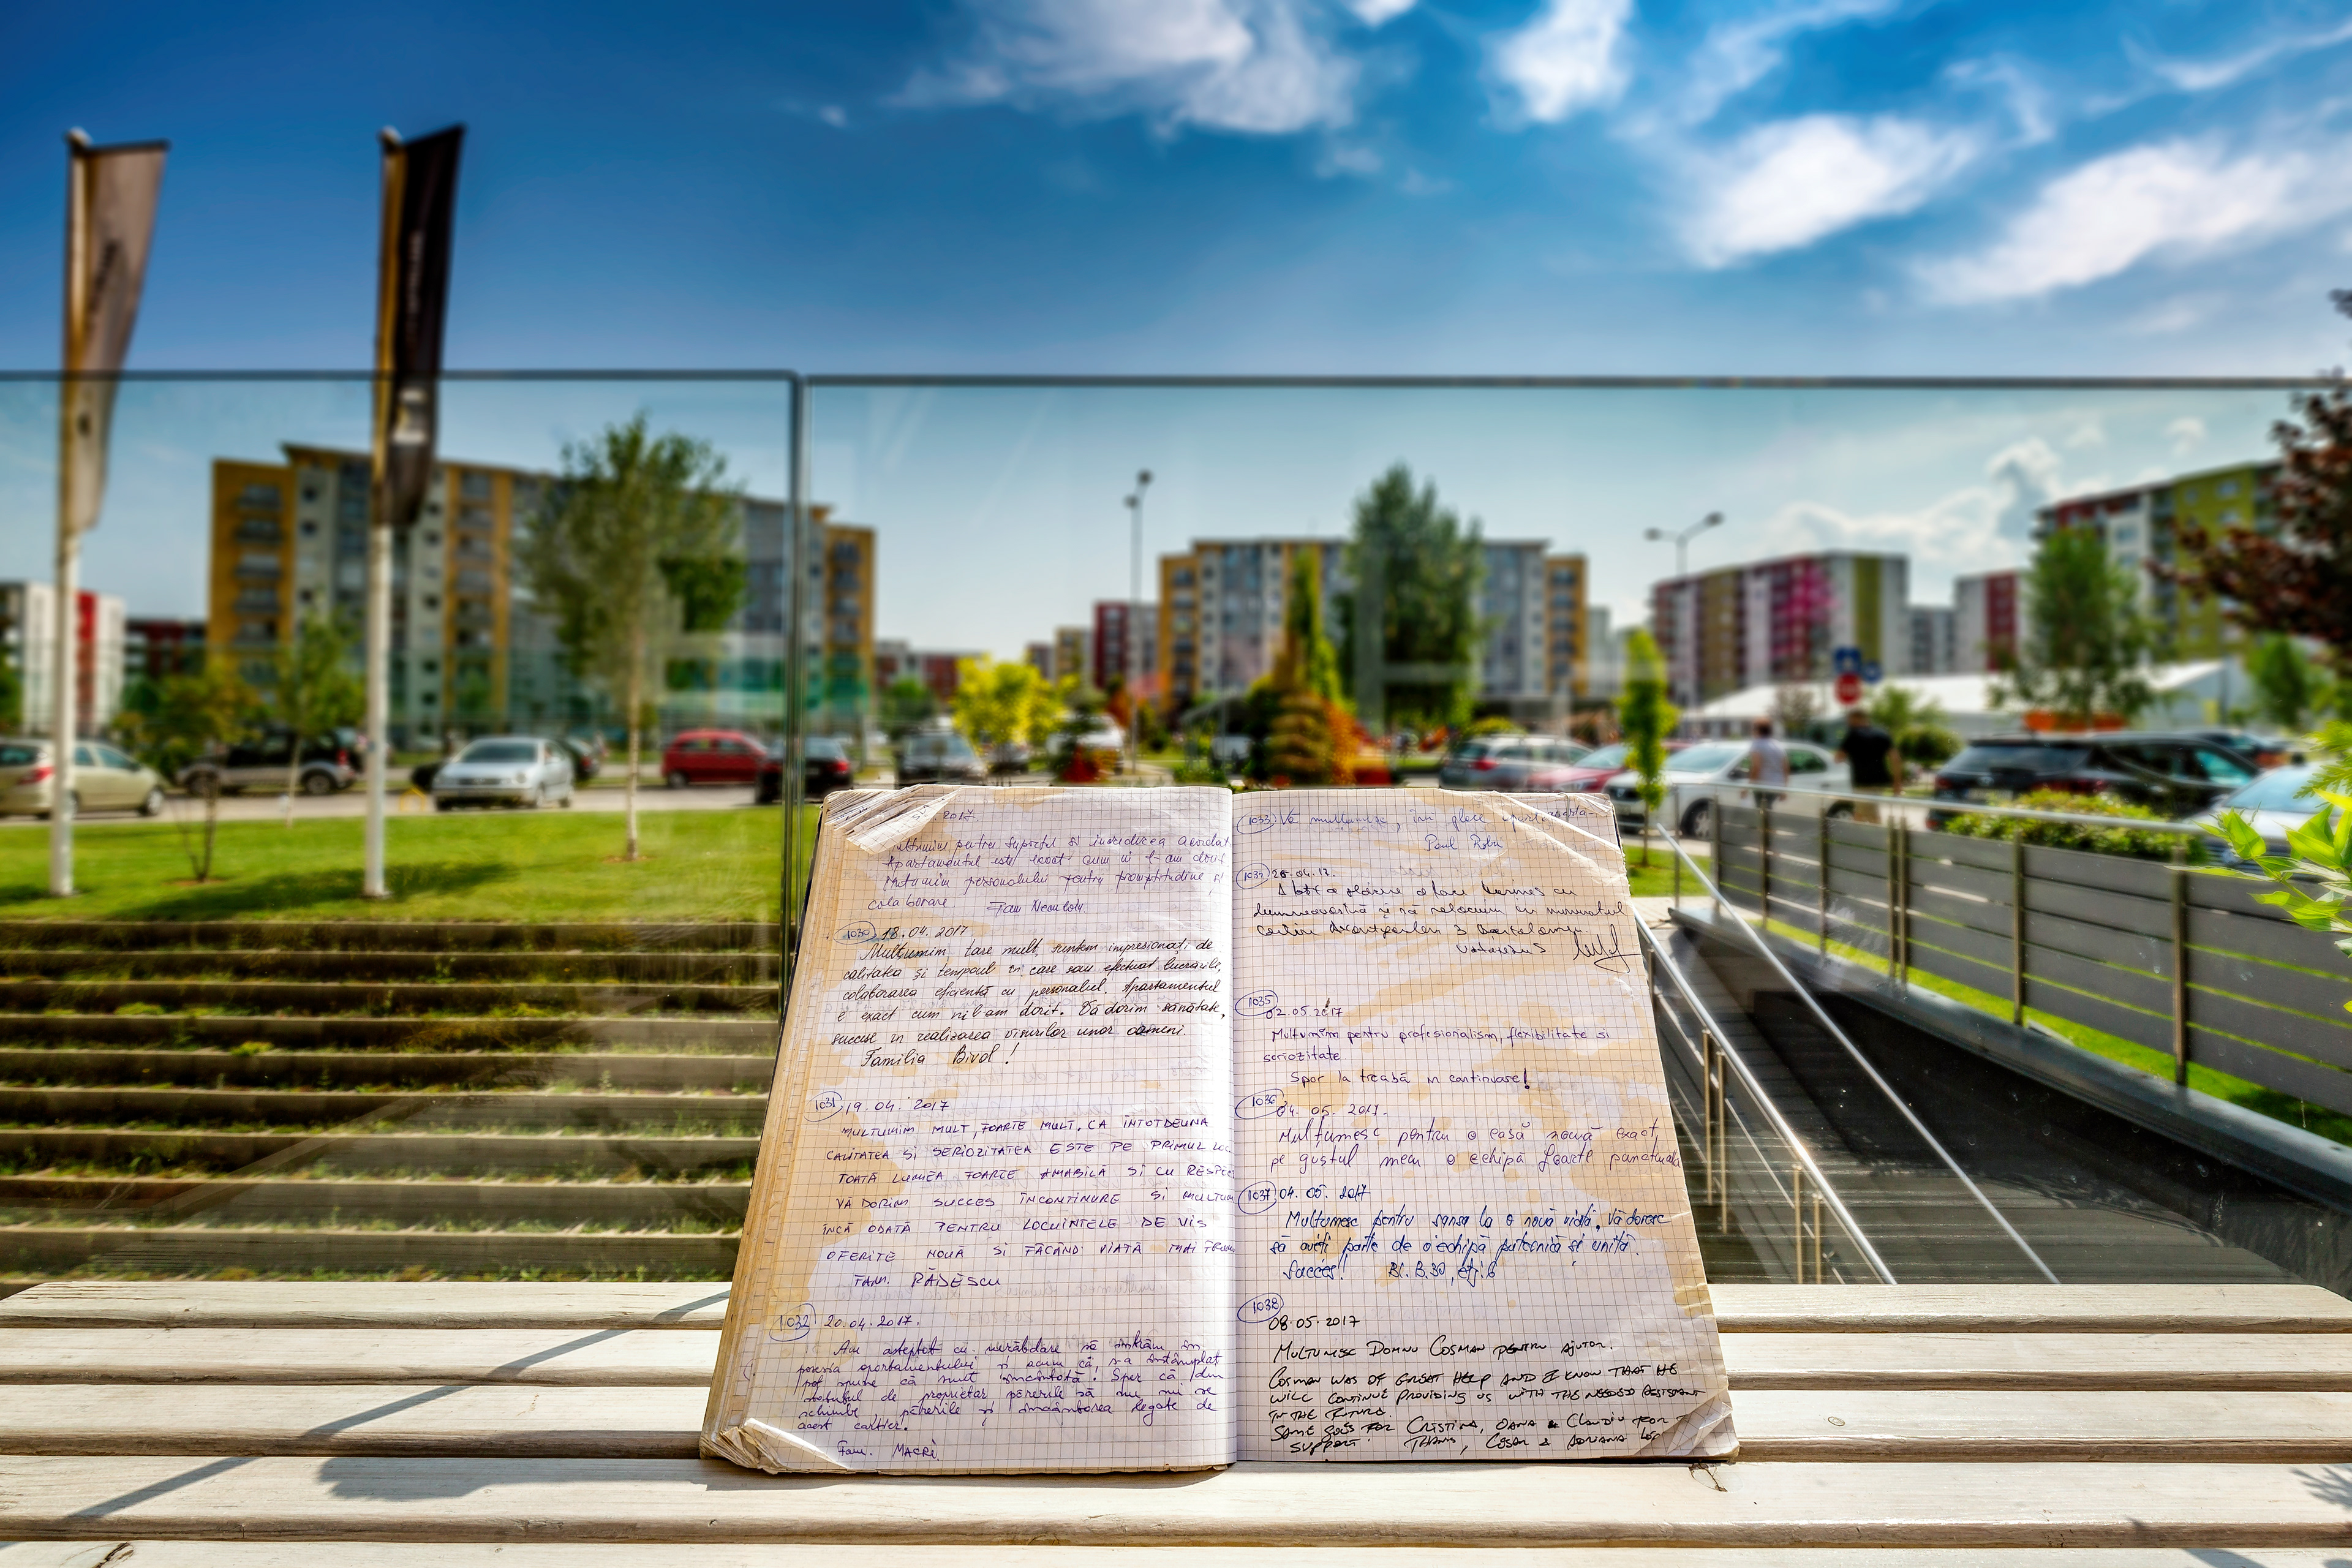 2017
Multumim pentru suportul si increderea acordat
Apartamentul este exact cum ni l-am dorit
Multumim personalului pentru promptitudine si
colaborare. Fam Neculoiu
1030 18.04.2017
Mulțumim tare mult, suntem impresionati de
calitatea și tempoul in care sau efectuat lucrările,
colaborarea eficientă cu personalul. Apartamentul
e exact cum ni l-am dorit. Vă dorim sănătate,
succese in realizarea visurilor unor oameni.
Familia Bivol!
1031 19.04.2017
MULTUMIM MULT, FOARTE MULT. CA ÎNTOTDEUNA
CALITATEA ȘI SERIOZITATEA ESTE PE PRIMUL LOC
TOATĂ LUMEA FOARTE AMABILĂ SI CU RESPECT
VĂ DORIM SUCCES ÎNCONTINURE SI MULTUM
ÎNCĂ ODATĂ PENTRU LOCUINTELE DE VIS
OFERITE NOUĂ SI FĂCÂND VIATĂ MAI FRUM
FAM. RĂDESCU
1032 20.04.2017.
Am asteptat cu nerăbdare să intrăm in
posesia apartamentului si acum că, s-a întâmplat
pot spune că sunt încântată! Sper că din
statutul de proprietar părerile să nu mi se
schimbe, părerile si încântarea legate de
acest cartier!
Fam. MACRI
1033 Vă mulțumesc, îmi place
Paul
1034 26.04.17.
dumneavoastră și să
1035
02.05.2017
Multumim pentru profesionalism, flexibilitate si
seriozitate.
Spor la treabă in continuare!
1036 04.05.2017.
Mulțumesc pentru o casă nouă exact
pe gustul meu o echipă foarte punctuala
1037 04.05.2017
Multumesc pentru sansa la o nouă viată. Vă doresc
să aveti parte de o echipă puternică si unită.
Succes! Bl. B.30, etj. 6
1038
08.05.2017
MULTUMESC DOMNU COSMAN PENTRU AJUTOR.
COSMAN WAS OF GREAT HELP AND I KNOW THAT HE
WILL CONTINUE PROVIDING US WITH THE NEEDED
IN THE FUTURE.
SAME GOES FOR CRISTINA, OANA & CLAUDIU FOR
SUPPORT. THANKS, CESAR & ADRIANA